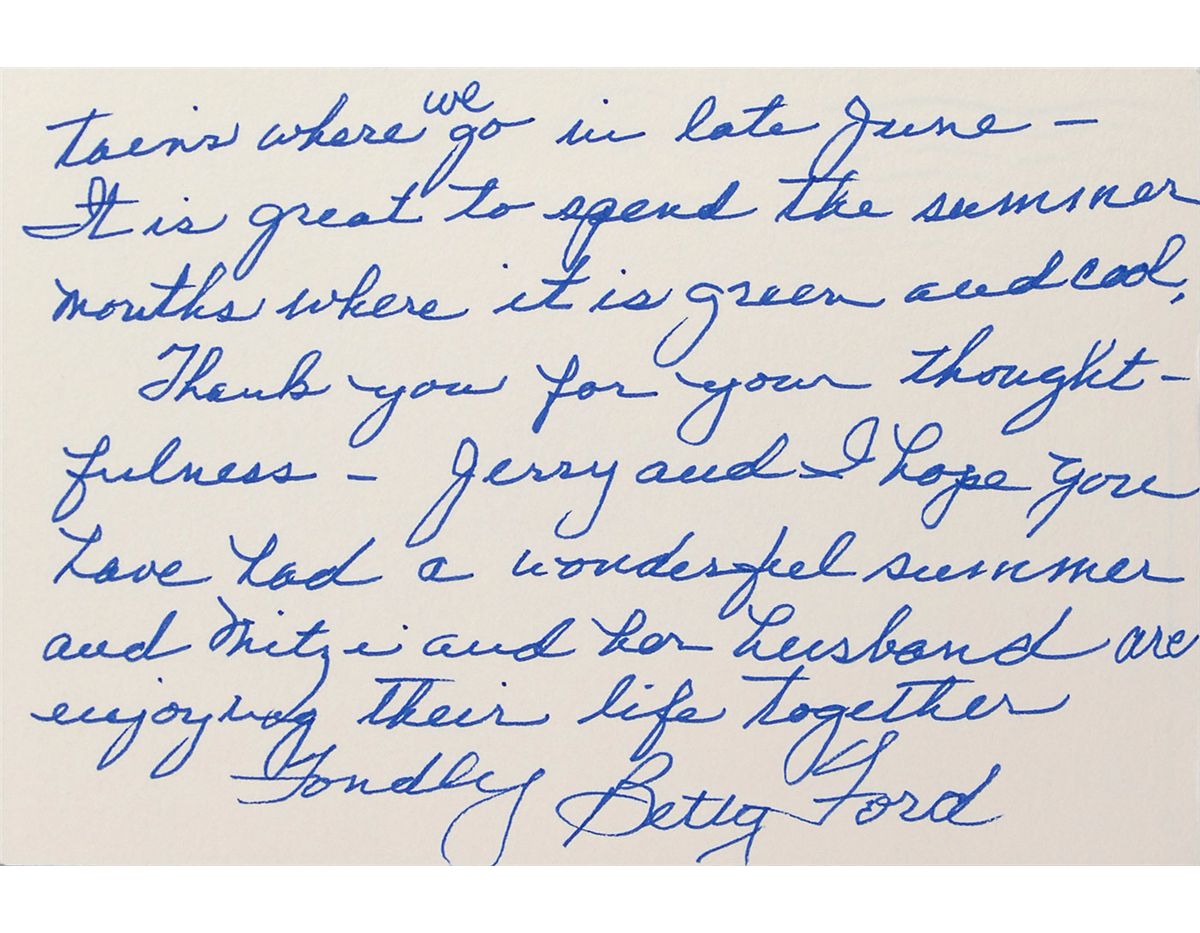 tains where we go in late June –
It is great to spend the summer
months where it is green and cool,
Thank you for your thought-
fulness – Jerry and I hope you
have had a wonderful summer
and Mitzi and her husband are
enjoying their life together
Fondly Betty Ford